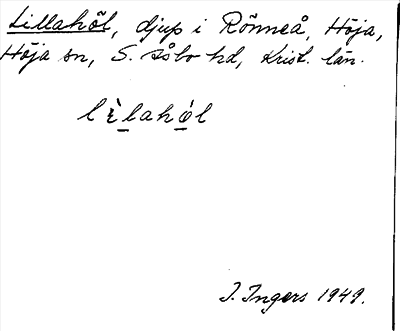 Lillahöl, djup i Rönneå, Höja,
Höja sn, S. Åsbo hd, Krist. län.
lìlahöl
I. Ingers 1949.